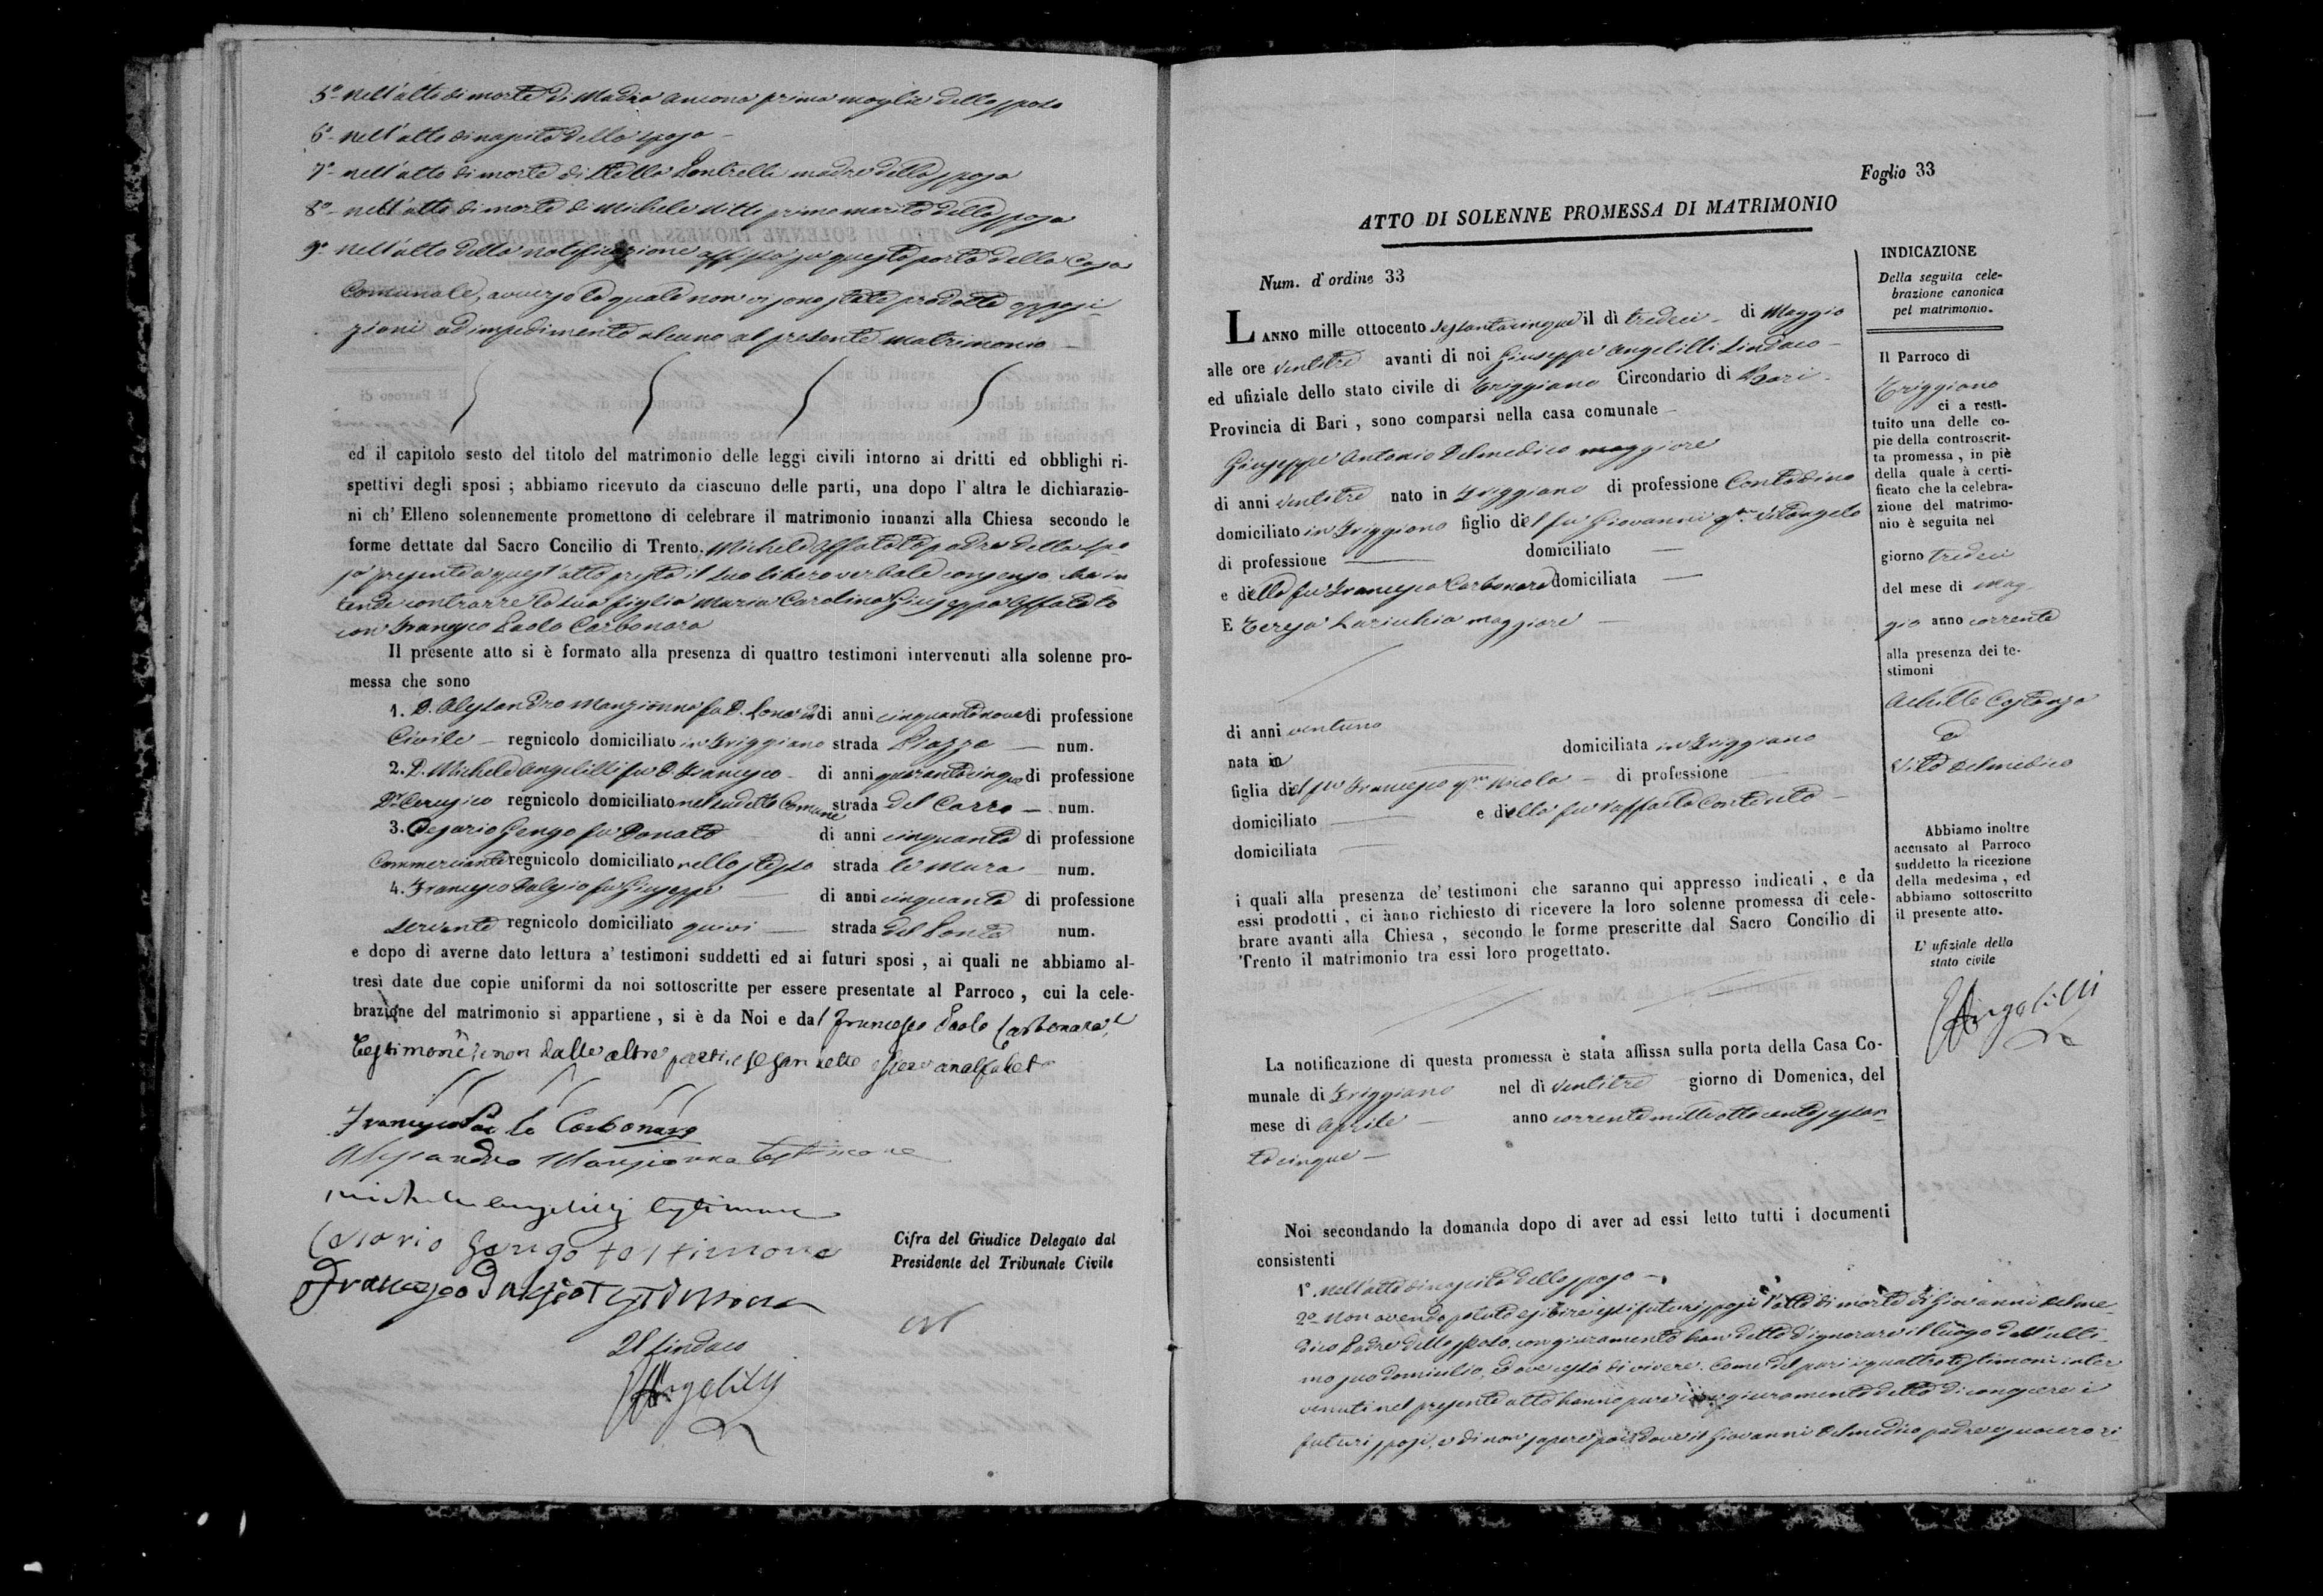 5º nell'atto di morte di Maria Ancona prima moglie dello sposo
6º nell'atto di nascita della sposa
7º nell'atto di morte di Stella Lontrelli madre della sposa
8º nell'atto di morte di Michele Nitti primo marito della sposa
9º nell'atto della notificazione affissa su questa porta della Casa
Comunale, avverso la quale non vi sono state prodotte opposi-
zioni ad impedimento alcuno al presente matrimonio
ed il capitolo sesto del titolo del matrimonio delle leggi civili intorno ai dritti ed obblighi ri-
spettivi degli sposi ; abbiamo ricevuto da ciascuno delle parti, una dopo l' altra le dichiarazio-
ni ch' Elleno solennemente promettono di celebrare il matrimonio innanzi alla Chiesa secondo le
forme dettate dal Sacro Concilio di Trento. Michele Affatato padre della spo
sa presente a quest'atto presta il suo libero verbale consenso che in
tende contrarre la sua figlia Maria Carolina Giuseppa Affatato
con Francesco Paolo Carbonara
Il presente atto si è formato alla presenza di quattro testimoni intervenuti alla solenne pro-
messa che sono
1. D. Alessandro Mangionna fu D. di anni cinquantanove di professione
Civile regnicolo domiciliato in Triggiano strada Piazza num.
2. D. Michele Angelilli fu D. Francesco di anni quarantacinque di professione
Dr. Cerusico regnicolo domiciliato nel sudetto Comune strada del Carro num.
3. Cesario Gengo fu Donato di anni cinquanta di professione
Commerciante regnicolo domiciliato nello stesso strada le Mura num.
4. Francesco Dalesio fu Giuseppe di anni cinquanta di professione
Serviente regnicolo domiciliato quivi strada del Ponte num.
e dopo di averne dato lettura a' testimoni suddetti ed ai futuri sposi , ai quali ne abbiamo al-
tresì date due copie uniformi da noi sottoscritte per essere presentate al Parroco , cui la cele-
brazione del matrimonio si appartiene , si è da Noi e dal Francesco Paolo Carbonara, e
Testimoni e non dalle altre parti, per aver detto essere analfabeti
Francesco Paolo Carbonara
Alessandro Mangionna testimone
Michele Angelilli testimone
Cesario Gengo testimone
Francesco Dalesio Testimone
Cifra del Giudice Delegato dal
Presidente del Tribunale Civile
Il Sindaco
GAngelilli
Foglio 33
ATTO DI SOLENNE PROMESSA DI MATRIMONIO
Num. d' ordine 33
L ANNO mille ottocento sessantacinque il dì tredici di Maggio
alle ore ventitre avanti di noi Giuseppe Angelilli Sindaco
ed ufiziale dello stato civile di Triggiano Circondario di Bari
Provincia di Bari , sono comparsi nella casa comunale
Giuseppe Antonio Delmedico maggiore
di anni ventitre nato in Triggiano di professione Contadino
domiciliato in Triggiano figlio del fu Giovanni qm. Vitangelo
di professione domiciliato
e della fu Francesca Carbonara domiciliata
E Teresa Laricchia maggiore
di anni ventuno
nata in domiciliata in Triggiano
figlia del fu Francesco qm. Nicola di professione
domiciliato e della fu Raffaela Contento
domiciliata
i quali alla presenza de' testimoni che saranno qui appresso indicati , e da
essi prodotti , ci ànno richiesto di ricevere la loro solenne promessa di cele-
brare avanti alla Chiesa , secondo le forme prescritte dal Sacro Concilio di
Trento il matrimonio tra essi loro progettato.
La notificazione di questa promessa è stata affissa sulla porta della Casa Co-
munale di Triggiano nel dì ventitre giorno di Domenica, del
mese di Aprile anno corrente mille ottocento sessan-
tacinque
Noi secondando la domanda dopo di aver ad essi letto tutti i documenti
consistenti
1º nell'atto di nascita dello sposo
2º Non avendo potuto esibire essi futuri sposi l'atto di morte di Giovanni Delme-
dico Padre dello sposo, con giuramento han detto d'ignorare il luogo dell'ulti-
mo suo domicilio, e dove cessò di vivere. Come del pari i quattro testimoni inter
venuti nel presente atto hanno pure con giuramento detto di conoscere i
futuri sposi, e di non sapere poi dove il Giovanni Delmedico padre
INDICAZIONE
Della seguita cele-
brazione canonica
pel matrimonio.
Il Parroco di
Triggiano
ci a resti-
tuito una delle co-
pie della controscrit-
ta promessa , in piè
della quale à certi-
ficato che la celebra-
zione del matrimo-
nio è seguita nel
giorno tredici
del mese di Mag-
gio anno corrente
alla presenza dei te-
stimoni
Achille Costanza
e
Vito Delmedico
Abbiamo inoltre
accusato al Parroco
suddetto la ricezione
della medesima , ed
abbiamo sottoscritto
il presente atto.
L' ufiziale dello
stato civile
GAngelilli